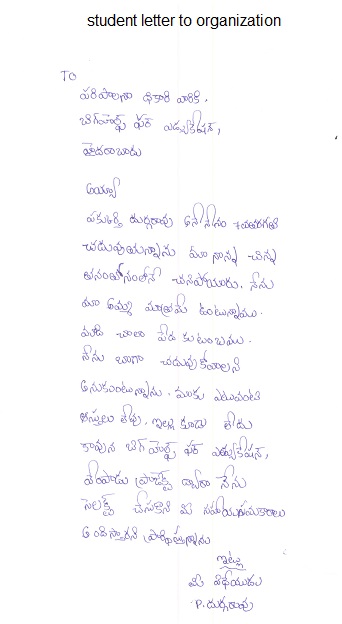 student letter to organization
TO
పరిపాలనా ధికారి వారికి,
బిగ్‌హెల్ప్ ఫర్ ఎడ్యుకేషన్,
హైదరాబాదు
అయ్యా
దుర్గారావు అనే నేను 7వతరగతి
చదువుతున్నాను మా నాన్న చిన్న
తనంలోనే చనిపోయారు. నేను
మా అమ్మ మాత్రమే ఉంటున్నాము.
మాది చాలా పేద కుటుంబము.
నేను బాగా చదువుకోవాలని
అనుకుంటున్నాను. మాకు ఎటువంటి
ఆస్తులు లేవు. ఇల్లు కూడు లేదు
కావున బిగ్ హెల్ప్ ఫర్ ఎడ్యుకేషన్,
ప్రాజెక్ట్ ద్వారా నేను
సెలక్ట్ చేసుకొని మీ సహాయసహకారాలు
అందిస్తారని ప్రార్థిస్తున్నాను
ఇట్లు
మీ విధేయుడు
P. దుర్గారావు